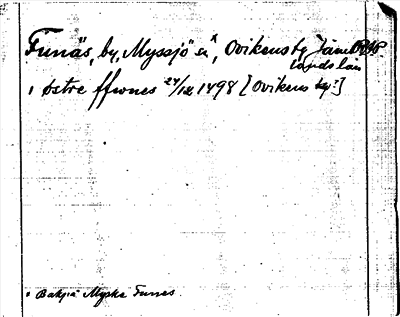 Funäs, by, Myssjö sn x, Ovikens tg Jämt
lands län
i østre ffwnes 24/12 1498 [Ovikens tg:]
x Baksia Myske Funes